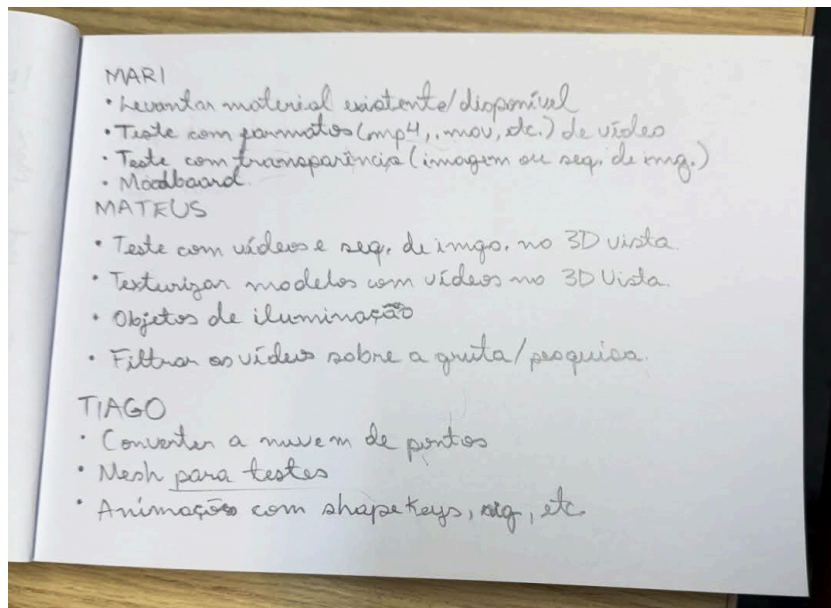 MARI
• Levantar material existente/disponível
• Teste com formatos (mp4, .mov, etc.) de vídeo
• Teste com transparência (imagem ou seq. de img.)
• Moodboard.
MATEUS
• Teste com vídeos e seq. de imgs. no 3D vista.
• Texturizar modelos com vídeos no 3D Vista.
• Objetos de iluminação
• Filtrar os vídeos sobre a gruta/pesquisa.
TIAGO
• Converter a nuvem de pontos
• Mesh para testes
• Animação com shapekeys, rig, etc.